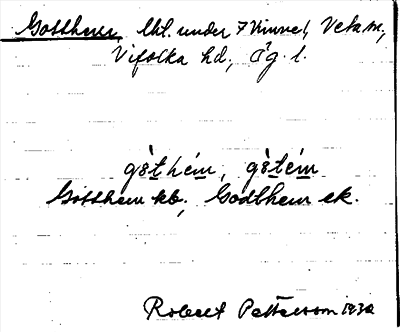 Gotthem, lht. under 7 Kinnel, Veta sn,
Vifolka hd, Ög. l.
gòthém, gòtém
Gotthem kb, Godthem ek.
Robert Petterson 1930